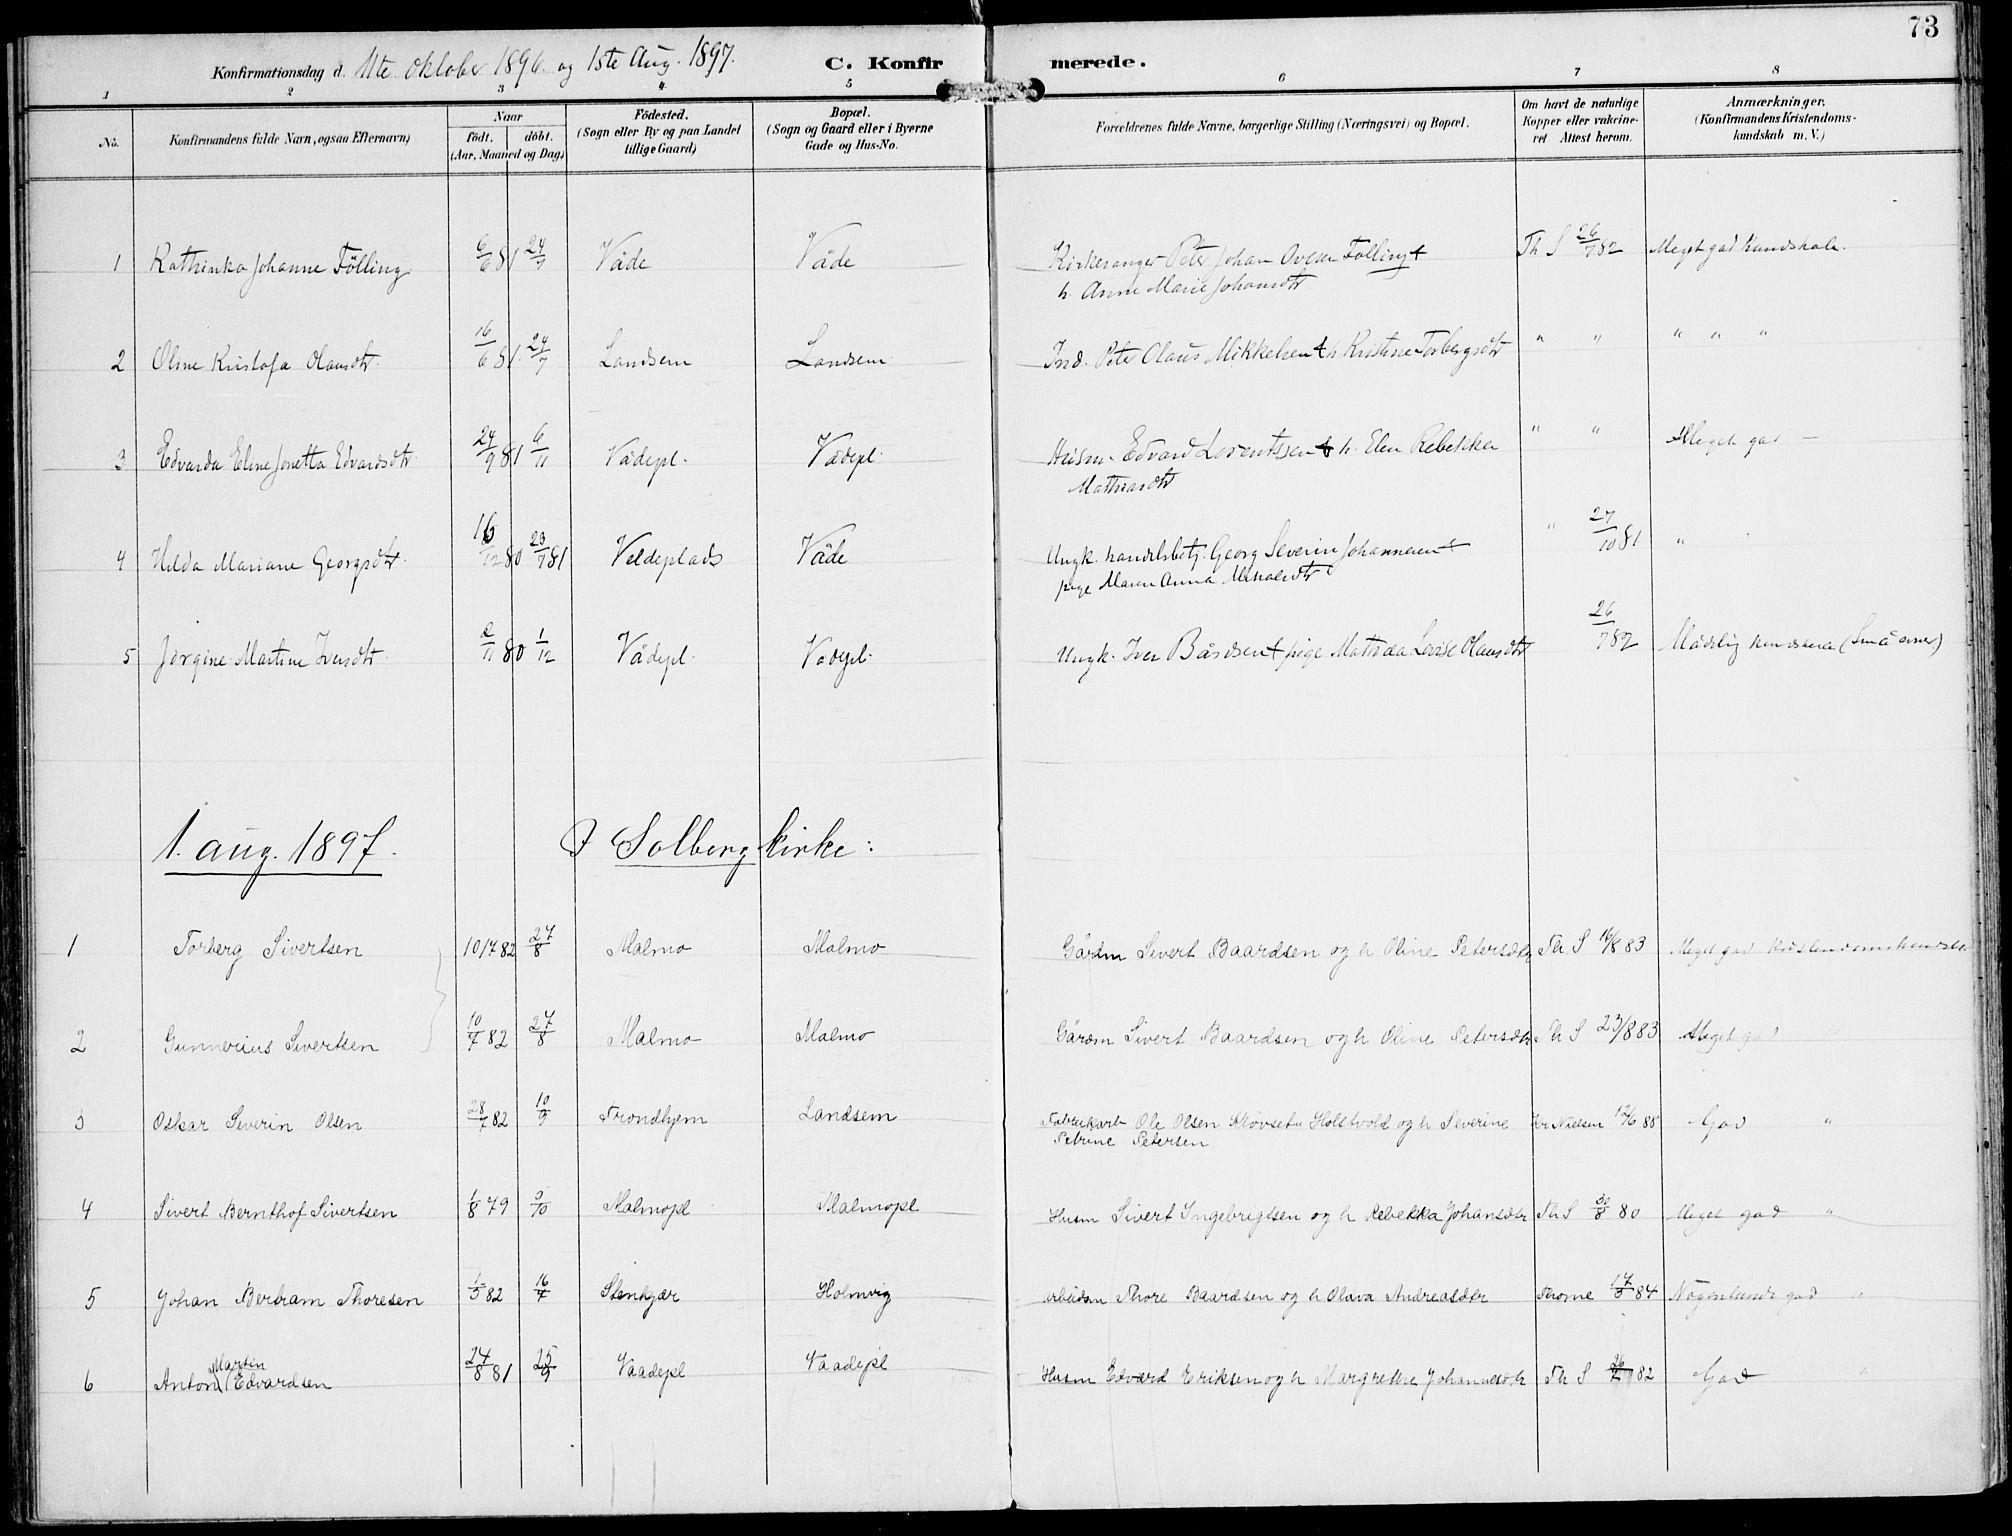 73
Konfirmationsdag d. 11te. Oktober 1896. og 1ste Aug. 1897. C. Konfirmerede.
1 2 3 4 5 6 7 8
No. Konfirmandens fulde Navn, ogsaa Efternavn) Naar født. døbt. (Aar, Maaned og Dag) Födested. (Sogn eller By og paa Landet tillige Gaard) Bopæl. (Sogn og Gaard eller i Byerne Gade og Hus-No. Forældrenes fulde Navne, borgerlige Stilling (Næringsvei) og Bopæl. Om havt de naturlige Kopper eller vakcineret Attest herom. Anmærkninger, (Konfirmandens Kristendomskundskab m. V.)
1 Kathinka Johanne Fölling 6/6 81 24/7 Våde Våde Kirkesanger Peter Johan Ovesen Følling + Th S 26/7 82 Meget god Kundskab.
h. Anne Marie Johansdtr
2 Oline Kristofa Olausdtr. 16/6 81. 24/7 Landsem Landsem Ind. Peter Olaus Mikkelsen + h Kristine Torbergsdtr " " " " "
3 Edvarda Eline Jonetta Edvardsdtr 24/9 81 6/11 Vådepl. Vådepl. Husm. Edvard Lorentssen + h. Elen Rebekka " " Meget god —
Mathiasdtr
4 Hilda Mariane Georgsdtr. 16/12 80 23/7 81 Veldeplads Våde Ungk. handelsbetj. Georg Severin Johannesen + " 27/10 81 "
pige Maren Anna Mikalsdtr
5 Jørgine Martine Iversdtr. 2/11 80 1/12 Vådepl. Vådepl. Ungk. Iver Bårdsen + pige Mathea Lovise Olausdtr 26/7 82 Mådelig kundskab (Små evner)
1. aug. 1897. I Solberg kirke:
1 Torberg Sivertsen 10/7 82 27/8 Malmo Malmo Gårdm Sivert Baardsen og h Oline Petersdtr Th. S 16/8 83 Meget god kristendomskundskab
2 Gunnerius Sivertsen 10/7 82 27/8 Malmo Malmo Gårdm Sivert Baardsen og h Oline Petersdtr Th S 23/8 83 Meget god "
3 Oskar Severin Olsen 28/7 82 10/9 Trondhjem Landsem Fabrikarb Ole Olsen Holstvold og h Severine Nielsen 12/6 88 God "
Petrine Petersen
4 Sivert Bernthof Sivertsen 1/8 79 5/10 Malmopl Malmopl Husm Sivert Ingebrigtsen og h Rebekka Johansdtr Th S 30/8 80 Meget god "
5 Johan Bertram Thoresen 1/5 82 16/7 Stenkjær Holmvig arbeidsm Thore Baardsen og h Olava Andreasdtr Thorne 17/5 84 Nogenlunde god "
6 Anton Martin Edvardsen 24/8 81 25/9 Vaadepl Vaadepl Husm Edvard Eriksen og h Margrethe Johannesdtr Th S 26/7 82 God "